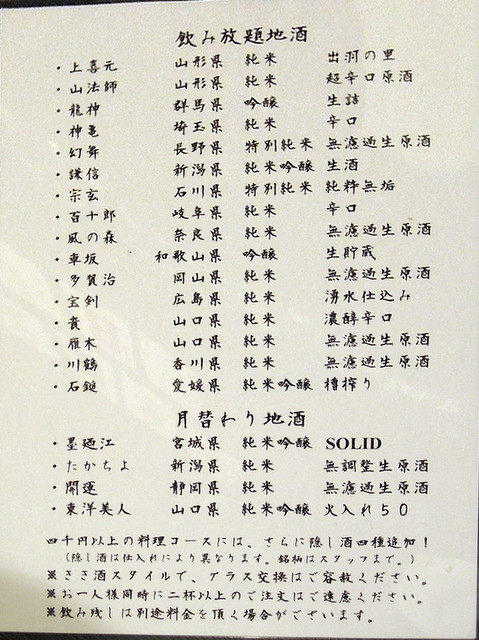 飲み放題地酒
・上喜元 山形県 純米 出羽の里
・山法師 山形県 純米 超辛口原酒
・龍神 群馬県 吟醸 生詰
・神亀 埼玉県 純米 辛口
・幻舞 長野県 特別純米 無濾過生原酒
・謙信 新潟県 純米吟醸 生酒
・宗玄 石川県 特別純米 純粋無垢
・百十郎 岐阜県 純米 辛口
・風の森 奈良県 純米 無濾過生原酒
・車坂 和歌山県 吟醸 生貯蔵
・多賀治 岡山県 純米 無濾過生原酒
・宝剣 広島県 純米 湧水仕込み
・貴 山口県 純米 濃醇辛口
・雁木 山口県 純米 無濾過生原酒
・川鶴 香川県 純米 無濾過生原酒
・石鎚 愛媛県 純米吟醸 槽搾り
月替わり地酒
・墨廼江 宮城県 純米吟醸 SOLID
・たかちよ 新潟県 純米 無調整生原酒
・開運 静岡県 純米 無濾過生原酒
・東洋美人 山口県 純米吟醸 火入れ50
四千円以上の料理コースには、さらに隠し酒四種追加！
（隠し酒は仕入れにより異なります。銘柄はスタッフまで。）
※きき酒スタイルで、グラス交換はご容赦ください。
※お一人様同時に二杯以上のご注文はご遠慮ください。
※飲み残しは別途料金を頂く場合がございます。